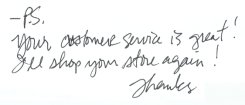 -P.S.
Your customer service is great!
I'll shop your store again!
Thanks